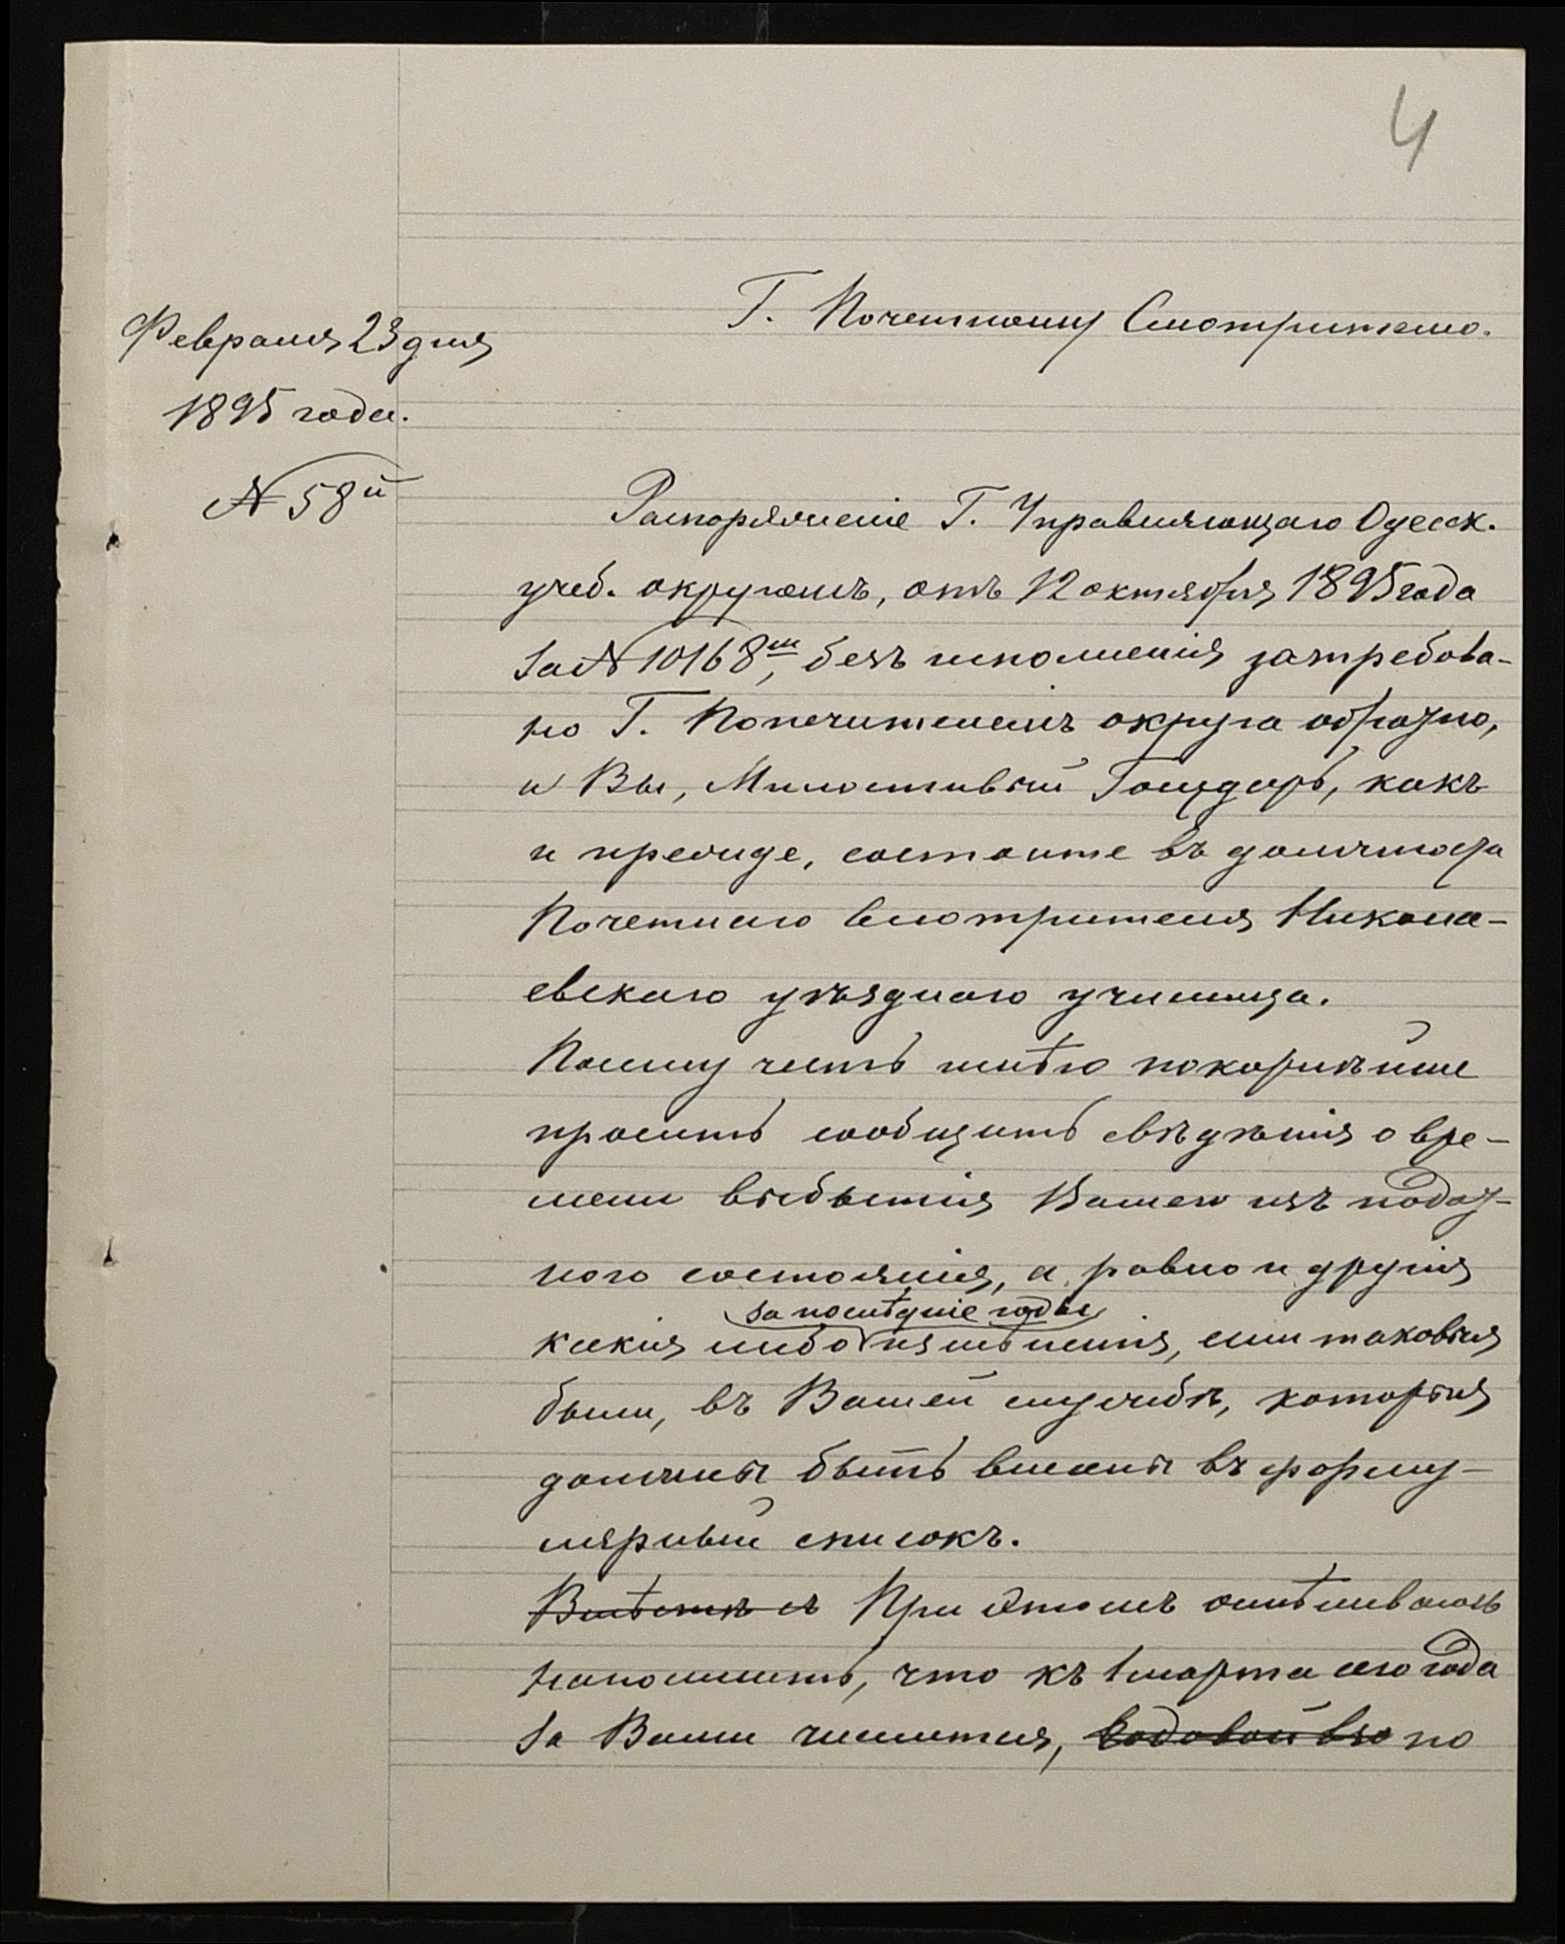 4
Г. Почетному Смотрителю.
Февраля 23 дня
1895 года.
№ 58й
Распоряженіе Г. Управляющаго Одесск.
учеб. округомъ, отъ 12 октября 1895 года
за № 10168мъ, безъ исполненія затребова-
но Г. Попечителемъ округа обратно,
и Вы, Милостивый Государь, какъ
и прежде, состоите въ должности
Почетнаго Смотрителя Никола-
евскаго уѣзднаго училища.
Посему честь имѣю покорнѣйше
просить сообщить свѣдѣнія о вре-
мени выбытія Вашего изъ подат-
ного состоянія, а равно и другія
за послѣдніе годы
какія либо измѣненія, если таковыя
были, въ Вашей службѣ, которыя
должны быть внесены въ форму-
лярный списокъ.
Вмѣстѣ съ При этомъ осмѣливаюсь
напомнить, что къ 1 марта сего года
за Вами числится, годовой вз по